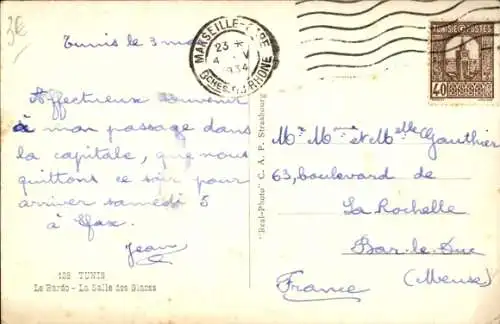 3€
Tunis le 3 mai
MARSEILLE-GARE
23 *
4 V
1934
BCHES DU RHONE
TUNISIE POSTES
40
Affectueux souvenir
à mon passage dans
la capitale, que nous
quittons ce soir pour
arriver samedi 5
à Sfax.
Jean
Mr Mme et Melle Gauthier
63, boulevard de
La Rochelle
Bar-le-Duc
(Meuse)
France
"Real-Photo" C. A. P. Strasbourg
TUNIS
Le Bardo - La Salle des Glaces